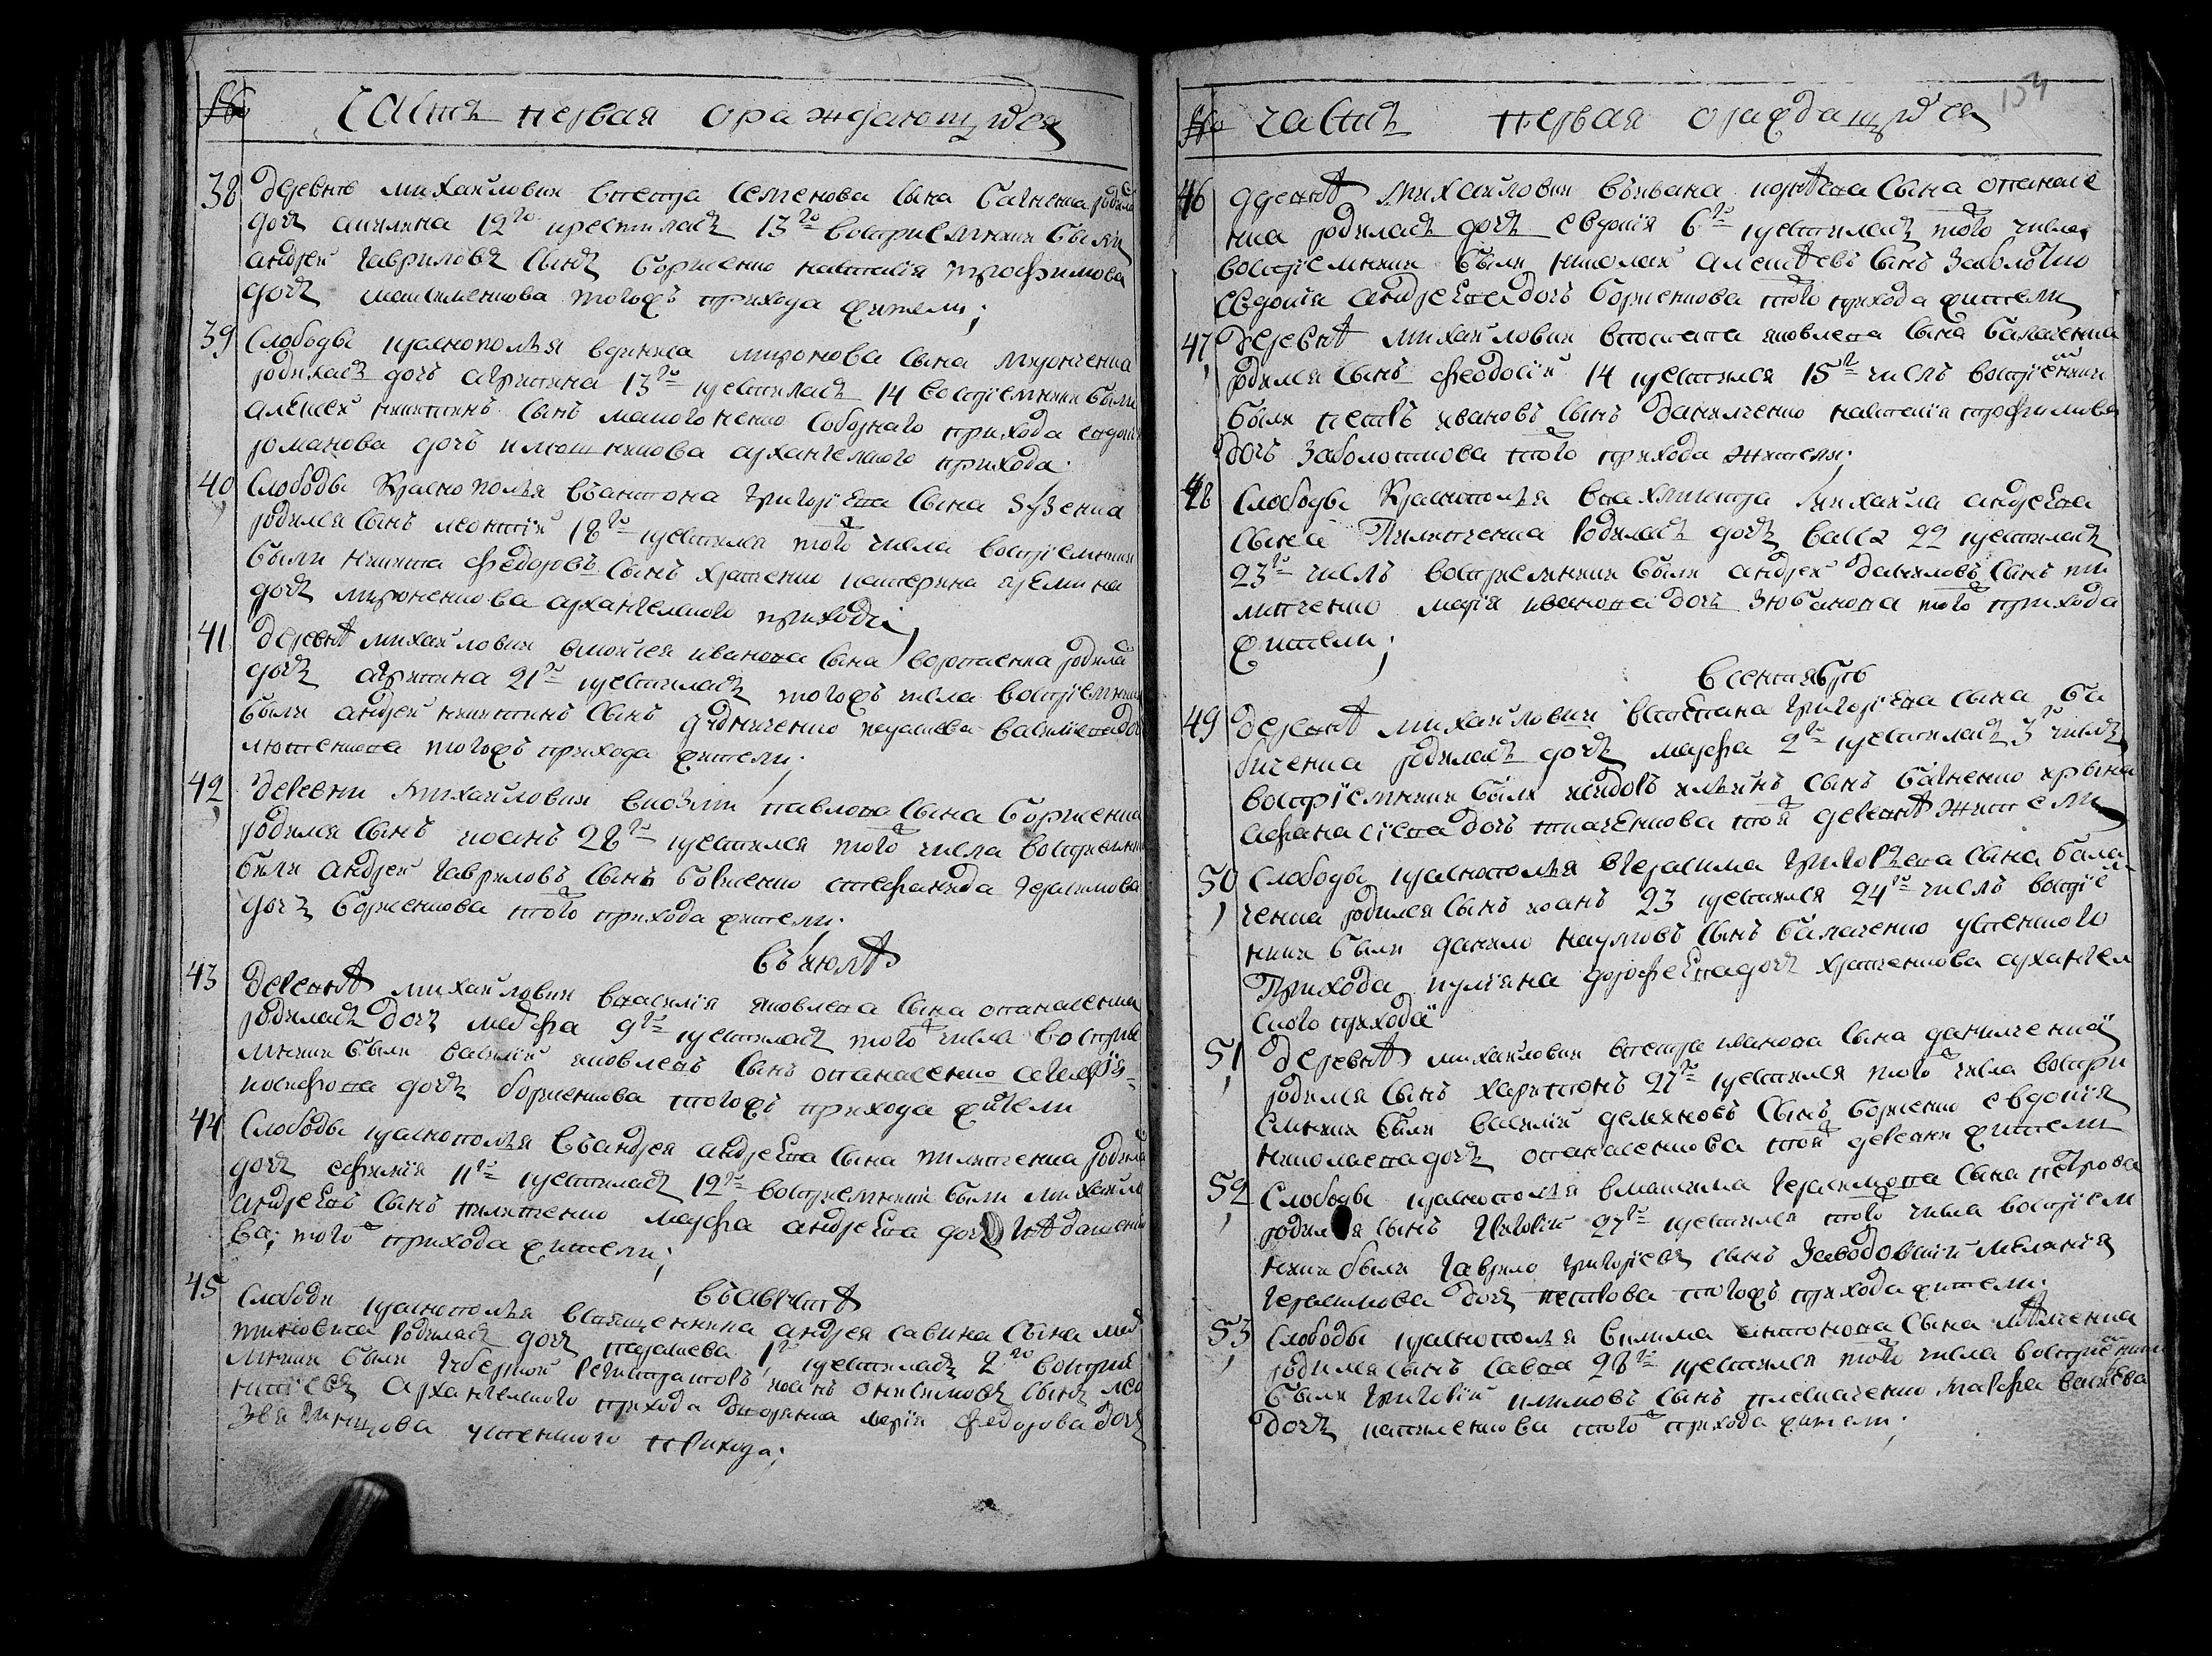 № Часть перваяораждающихся
38 деревне михайловки впетра семенова сына байченка родила
дочь акилина 12го крестилась 13го восприемники были
андрей гавриловъ сынъ борисенко настасія трофимова
дочь максименкова тогожъ прихода жители;
39 Слободы краснополья вдениса миронова сына миронченка
родилась дочь агрипина 13го крестилась 14 восприемники были
алексей никитинъ сынъ соборнаго прихода евдокия
романова дочь архангелского прихода
40 Слободы Краснополья въантона григорiева сына зузенка
родился сынъ леонтiй 18го крестился того числа восприемники
были никита федоровъ сынъ катерина еремина
дочь мироненкова архангелского прихода
41 деревнѣ михайловки вмойсея иванова сына воропаенка родила
дочь агрипина 21го крестилась тогожъ числа восприемники
были андрей никитинъ сынъ параскева василиева дочь
тогожъ прихода жители;
42 деревни михайловки вкозми павлова сына борисенка
родился сынъ иоанъ 28го крестился того числа восприемни
были андрей гавриловъ сынъ борисенко стефанида герасимова
дочь борисенкова того прихода жители;
въ июлѣ
43 деревнѣ михайловки ввасилiя яковлева сына опанасенка
родилась дочь марфа 9го крестилась того числа восприе
мники были василiй яковлевъ сынъ опанасенко
иосифова дочь борисенкова тогожъ прихода жители
44 Слободы краснополья въандрея андрѣева сына пилипченка родила
дочь ефимiя 11го крестилась 12го восприемники были михайло
андрѣевъ сынъ пилипченко марфа андрѣева дочь
ва; того прихода жители;
въавгустѣ
45 Слободи краснополья всвященника андрея савина сына
родилась дочь параскева 1го крестилась 2го восприе
мники были губернски регистраторъ иоанъ онисимовъ сынъ
архангелского прихода дворянка марiя федорова дочь
успенского прихода;
154
№ часть первая ораждающихся
46 деревнѣ михайловки въивана сына опанасе
нка родилась дочь евдокiя 6го крестилась того числа
восприемники были николай алексѣевъ сынъ заболотно
евдокiя андрѣева дочь борисенкова того прихода жители
47 Деревнѣ михайловки впотапа яковлева сына балаченка
родился сынъ феодосiй 14 крестился 15го числъ воспрiемники
были петръ ивановъ сынъ данилченко настасiя трофимова
дочь заболотнова того прихода жители;
48 Слободы Краснополья михаила андрѣева
сына Пилипченка Родилась дочь васса 22 крестилась
23го числъ восприемники были андрей даниловъ сынъ пи
липченко марiя иванова дочь зюбанова того прихода
жители;
всентябрѣ
49 деревнѣ михайловки встепана григорiева сына ба
биченка родилась дочь марфа 2го крестилась 3 числъ
воспрiемники были исидоръ ильинъ сынъ байченко ирина
афанасiева дочь ткаченкова той деревнѣ жители
50 Слободы краснополья вгерасима григорiева сына бала
ченка родился сынъ иоанъ 23 крестился 24го числъ воспрiе
ники были данило наумовъ сынъ балаченко успенского
Прихода иулiана дорофѣева дочь архангел
ского прихода
51 деревнѣ михайловки впетра иванова сына данилченка
родился сынъ харитонъ 27го крестился того числа воспри
емники были василiй демяновъ сынъ борисенко евдокiя
николаева дочь опанасенкова той деревни жители
52 Слободы краснополья вмаксима герасимова сына петрова
родился сынъ григорiй 27го крестился того числа воспрiем
ники были гаврило григорiевъ сынъ Заводовский меланiя
герасимова дочь петрова тогожъ прихода жители;
53 Слободы краснополья вклима антонова сына
родился сынъ савва 28го крестился того числа воспрiемники
были григорiй климовъ сынъ марфа
дочь того прихода жители;